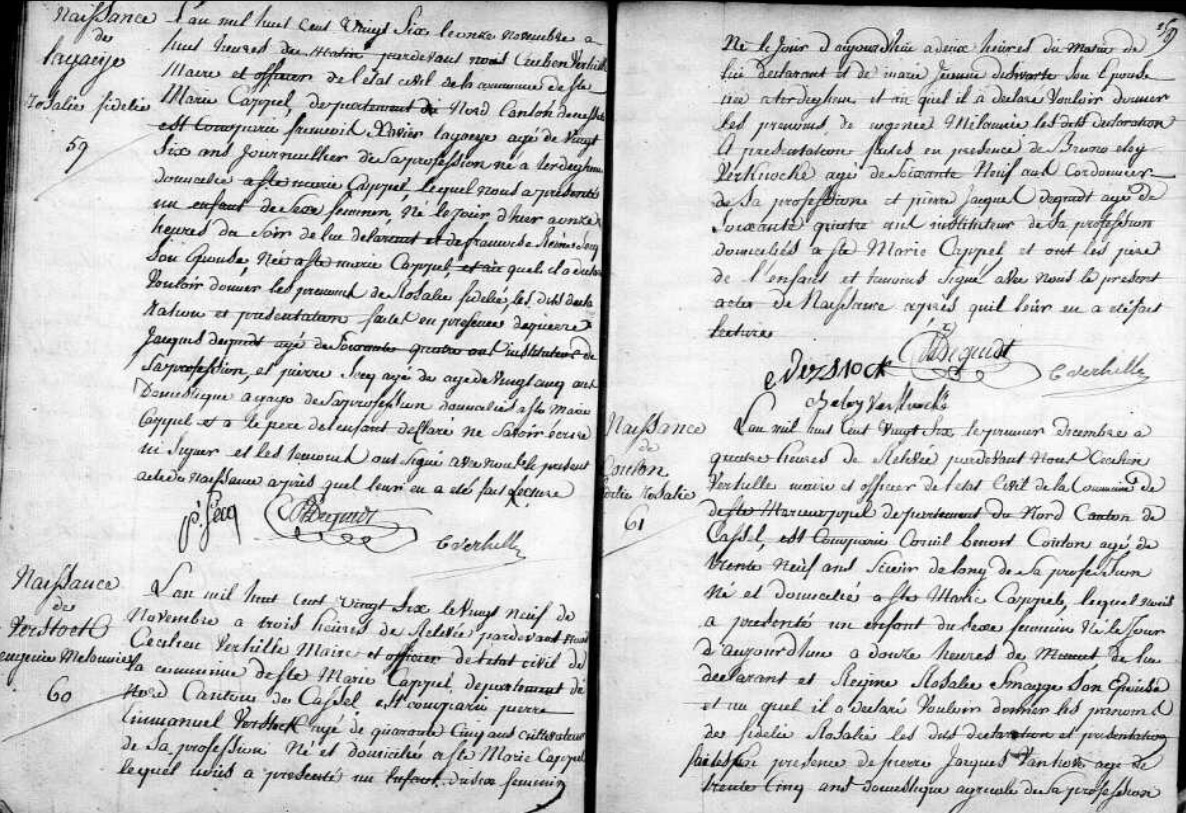 Naissance
de
lagaeye
Rosalie fidelie
59
L'an mil huit cent Vingt Six le onze Novembre a
huit heures du Matin pardevant nous Cecilien Verhille
Maire et officier de l'état civil de la commune de Ste
Marie Cappel, departement du Nord Canton de
est Comparu Xavier lagaeye agé de Vingt
Six ans Journaillier de Sa profession né a terdeghem
domicelié a Ste marie Cappel, lequel nous a présenté
un enfant de Sexe feminin, Né le Jour d'hier a onze
heures du Soir de lui declarant et de francoise Seeq
Son Epouse Née a Ste marie Cappel, et au quel il a declaré
Vouloir donner les prenoms de Rosalie fidelie, les dits decla
ration et présentation faites en presence de pierre
Jacques dequidt agé de Soixante quatre ans instituteur de
Sa profession, et pierre Seeq agé de vingt cinq ans
Domestique de Sa profession domicelies a Ste Marie
Cappel et a le pere de l'enfant déclaré ne Savoir écrire
ni Signer et les temoins ont Signé avec nous le présent
acte de Naissance après quil leur en a eté fait Lecture
p. Seeq Dequidt C Verhille
Naissance
de
Verstoct
eugenie Melannie
60
L'an mil huit cent Vingt Six le Vingt Neuf de
Novembre a trois heures de Relevée pardevant nous
Cecilien Verhille Maire et officier de l'etat civil de
la commune de Ste Marie Cappel, departement de
Nord Canton de Cassel est comparu pierre
Emmanuel Verstock agé de quarante Cinq ans cultivateur
de Sa profession Né et domicilié a Ste Marie Cappel
lequel nous a présenté un Enfant du Sexe feminin
Né le Jour d'aujourdhui a deux heures du Matin de
lui declarant et de marie Jeanne Son Epouse
née a terdeghem et au quel il a declaré Vouloir donner
les prenoms de eugenie Melannie les dits declaration
et présentation faites en presence de Bruno eloy
Verkiucke agé de Soixante Neuf ans Cordonnier
de Sa profession et pierre Jacques Dequidt agé de
Soixante quatre ans instituteur de Sa profession
domicelies a Ste Marie Cappel, et ont les pere
de l'enfant et temoins Signé avec Nous le present
acte de Naissance après quil leur en a eté fait
lecture
Verstock Dequidt C Verhille
B eloy
Naissance
de
Cointon
fidelie Rosalie
61
L'an mil huit Cent Vingt Six le premier decembre a
quatre heures de Relevée pardevant Nous Cecilien
Verhille maire et officier de l'etat Civil de la Commune de
Ste Marie Cappel departement du Nord Canton de
Cassel, est Comparu Benoit Cointon agé de
trente Neuf ans Scieur de long de Sa profession
Né et domicelié a Ste Marie Cappel, lequel Nous
a presenté un enfant du Sexe feminin Né le Jour
d'aujourdhui a douze heures de de lui
declarant et Regine Rosalie Smagge Son Epouse
et au quel il a declaré Vouloir donner les prenoms
de fidelie Rosalie les dits declaration et présentation
faites en presence de pierre Jacques Vanhove agé de
trente Cinq ans domestique agricole de Sa profession